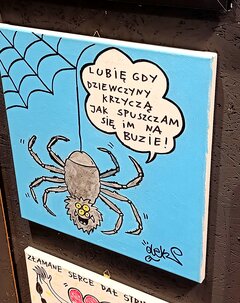 LUBIĘ GDY
DZIEWCZYNY
KRZYCZĄ
JAK SPUSZCZAM
SIĘ IM NA
BUZIE!
ZŁAMANE SERCE DAŁ